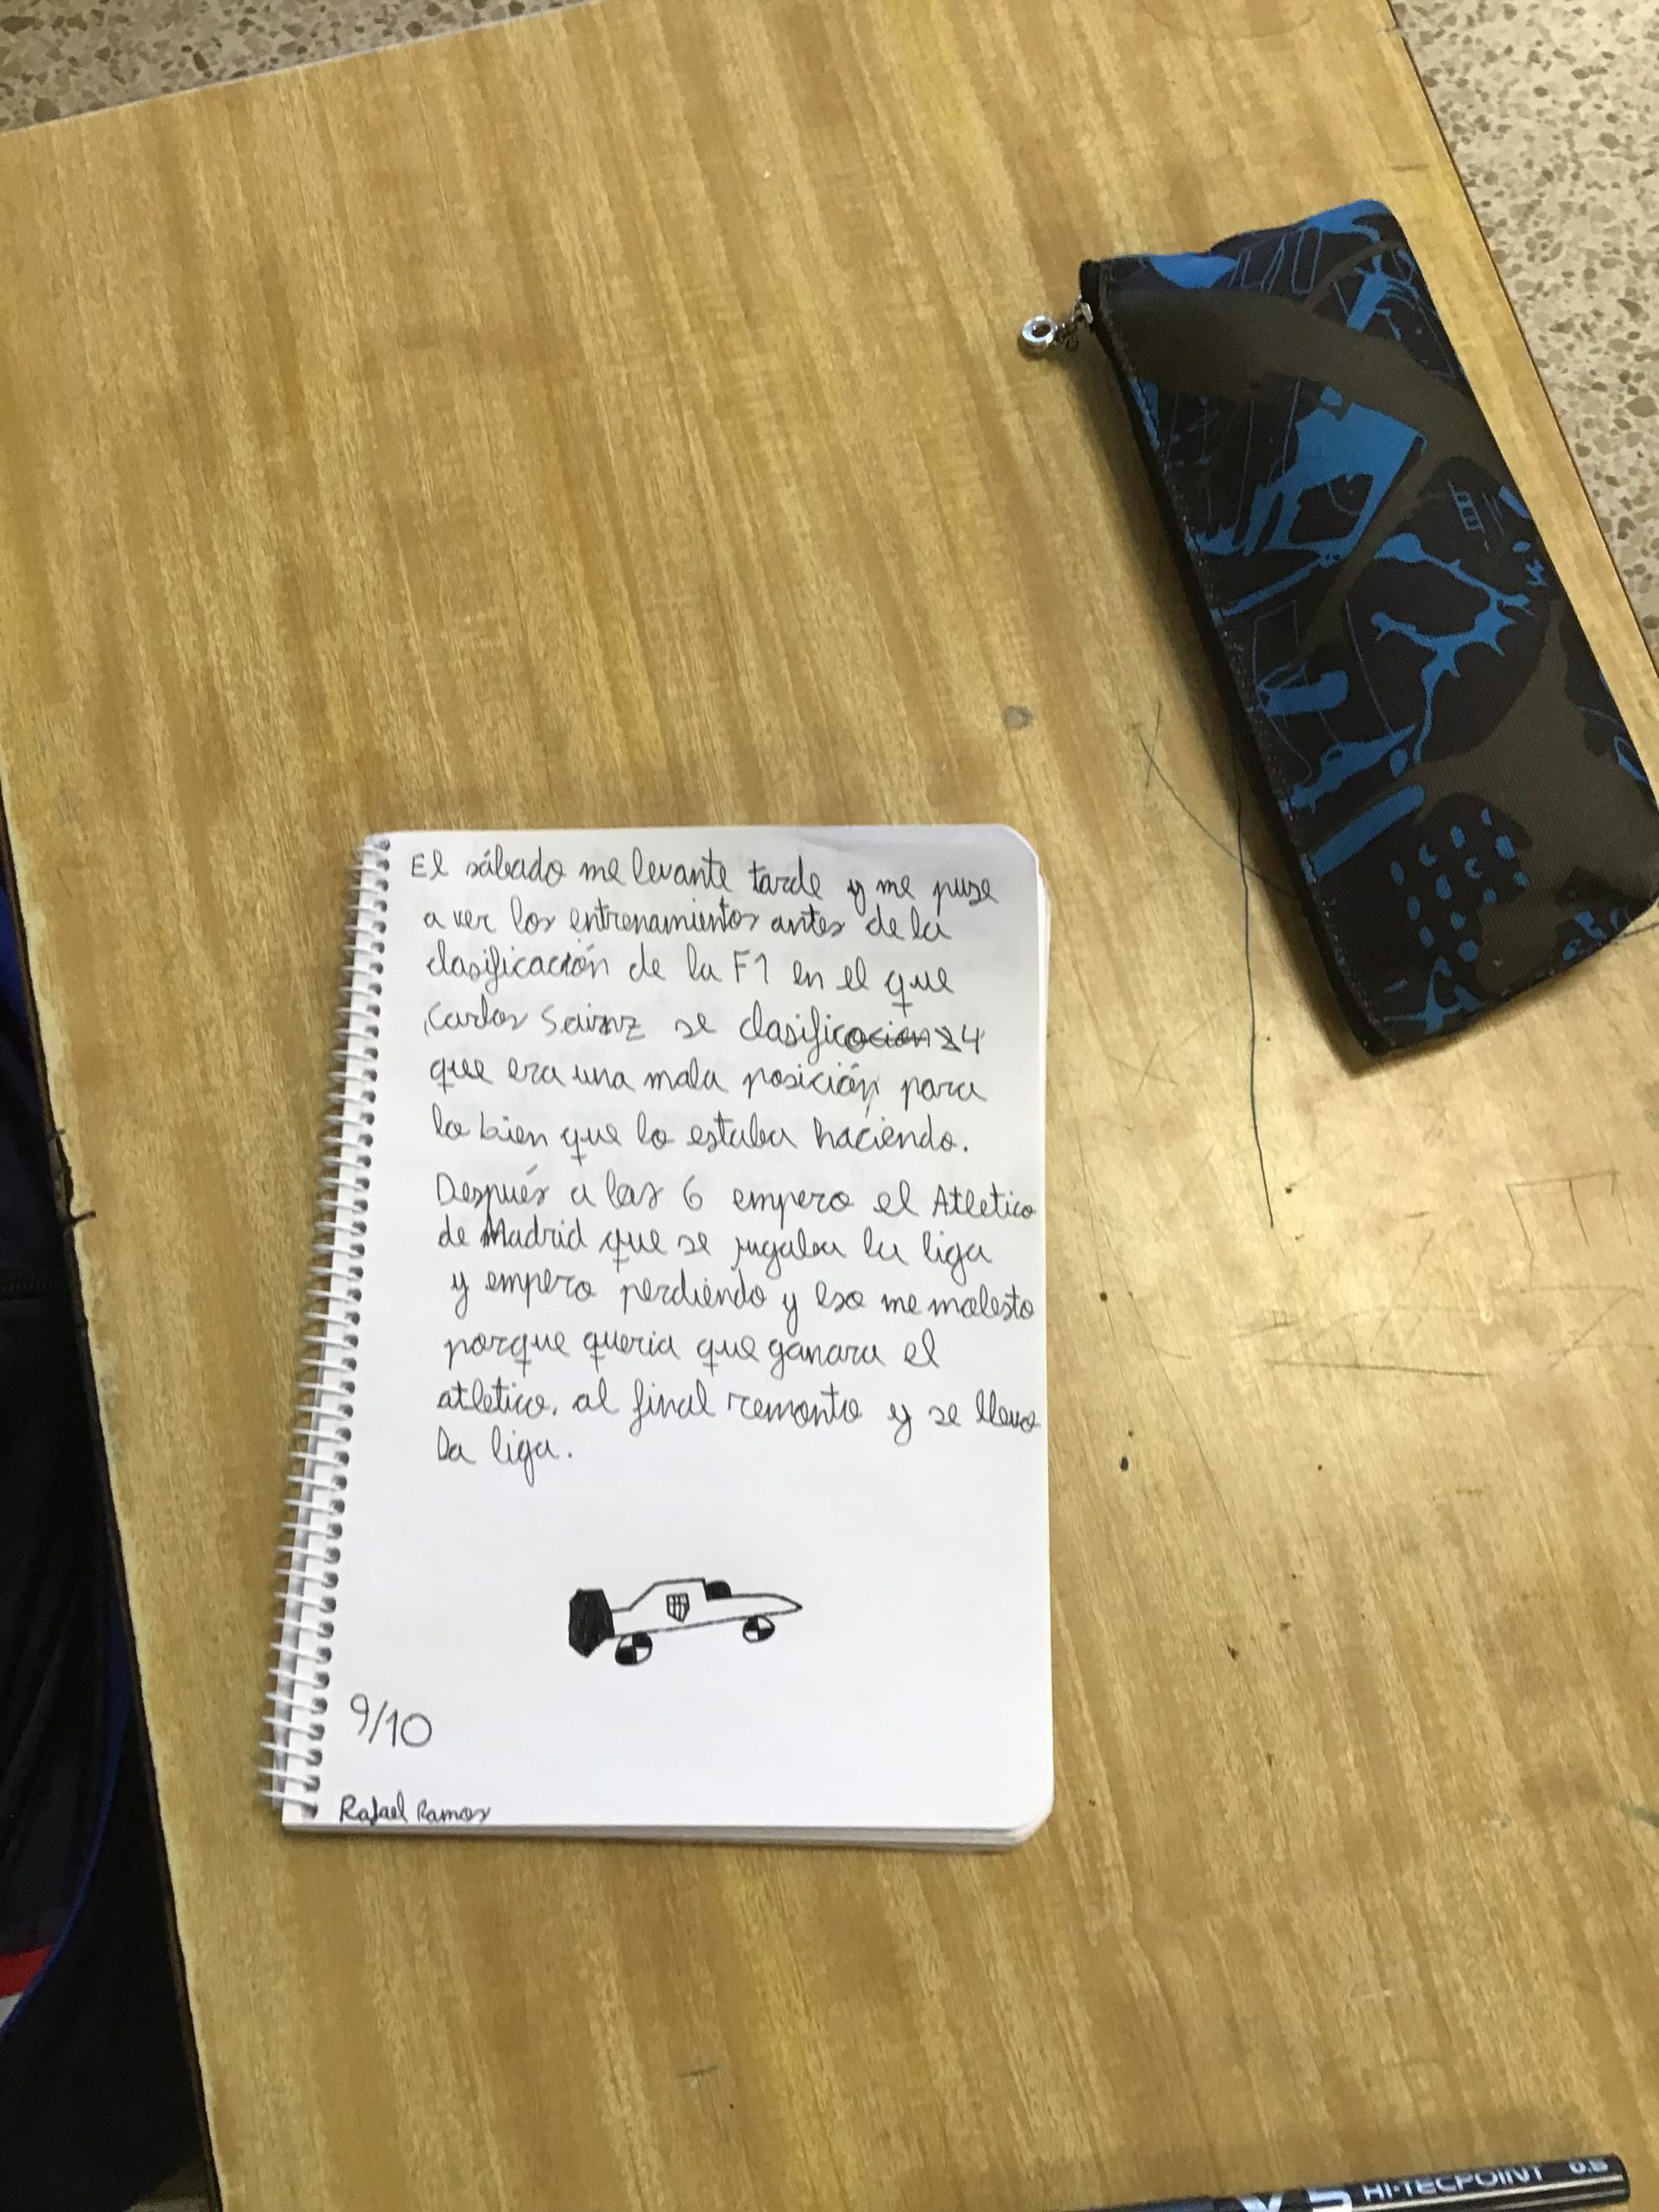 El sábado me levante tarde y me puse
a ver los entrenamientos antes de la
clasificación de la F1 en el que
Carlos Sainz se clasific 4
que era una mala posición para
lo bien que lo estaba haciendo.
Después a las 6 empezo el Atletico
de Madrid que se jugaba la liga
y empezo perdiendo y eso me molesto
porque queria que ganara el
atletico. al final remonto y se llevo
la liga.
9/10
Rafael Ramos
V5 HI-TECPOINT 0.5